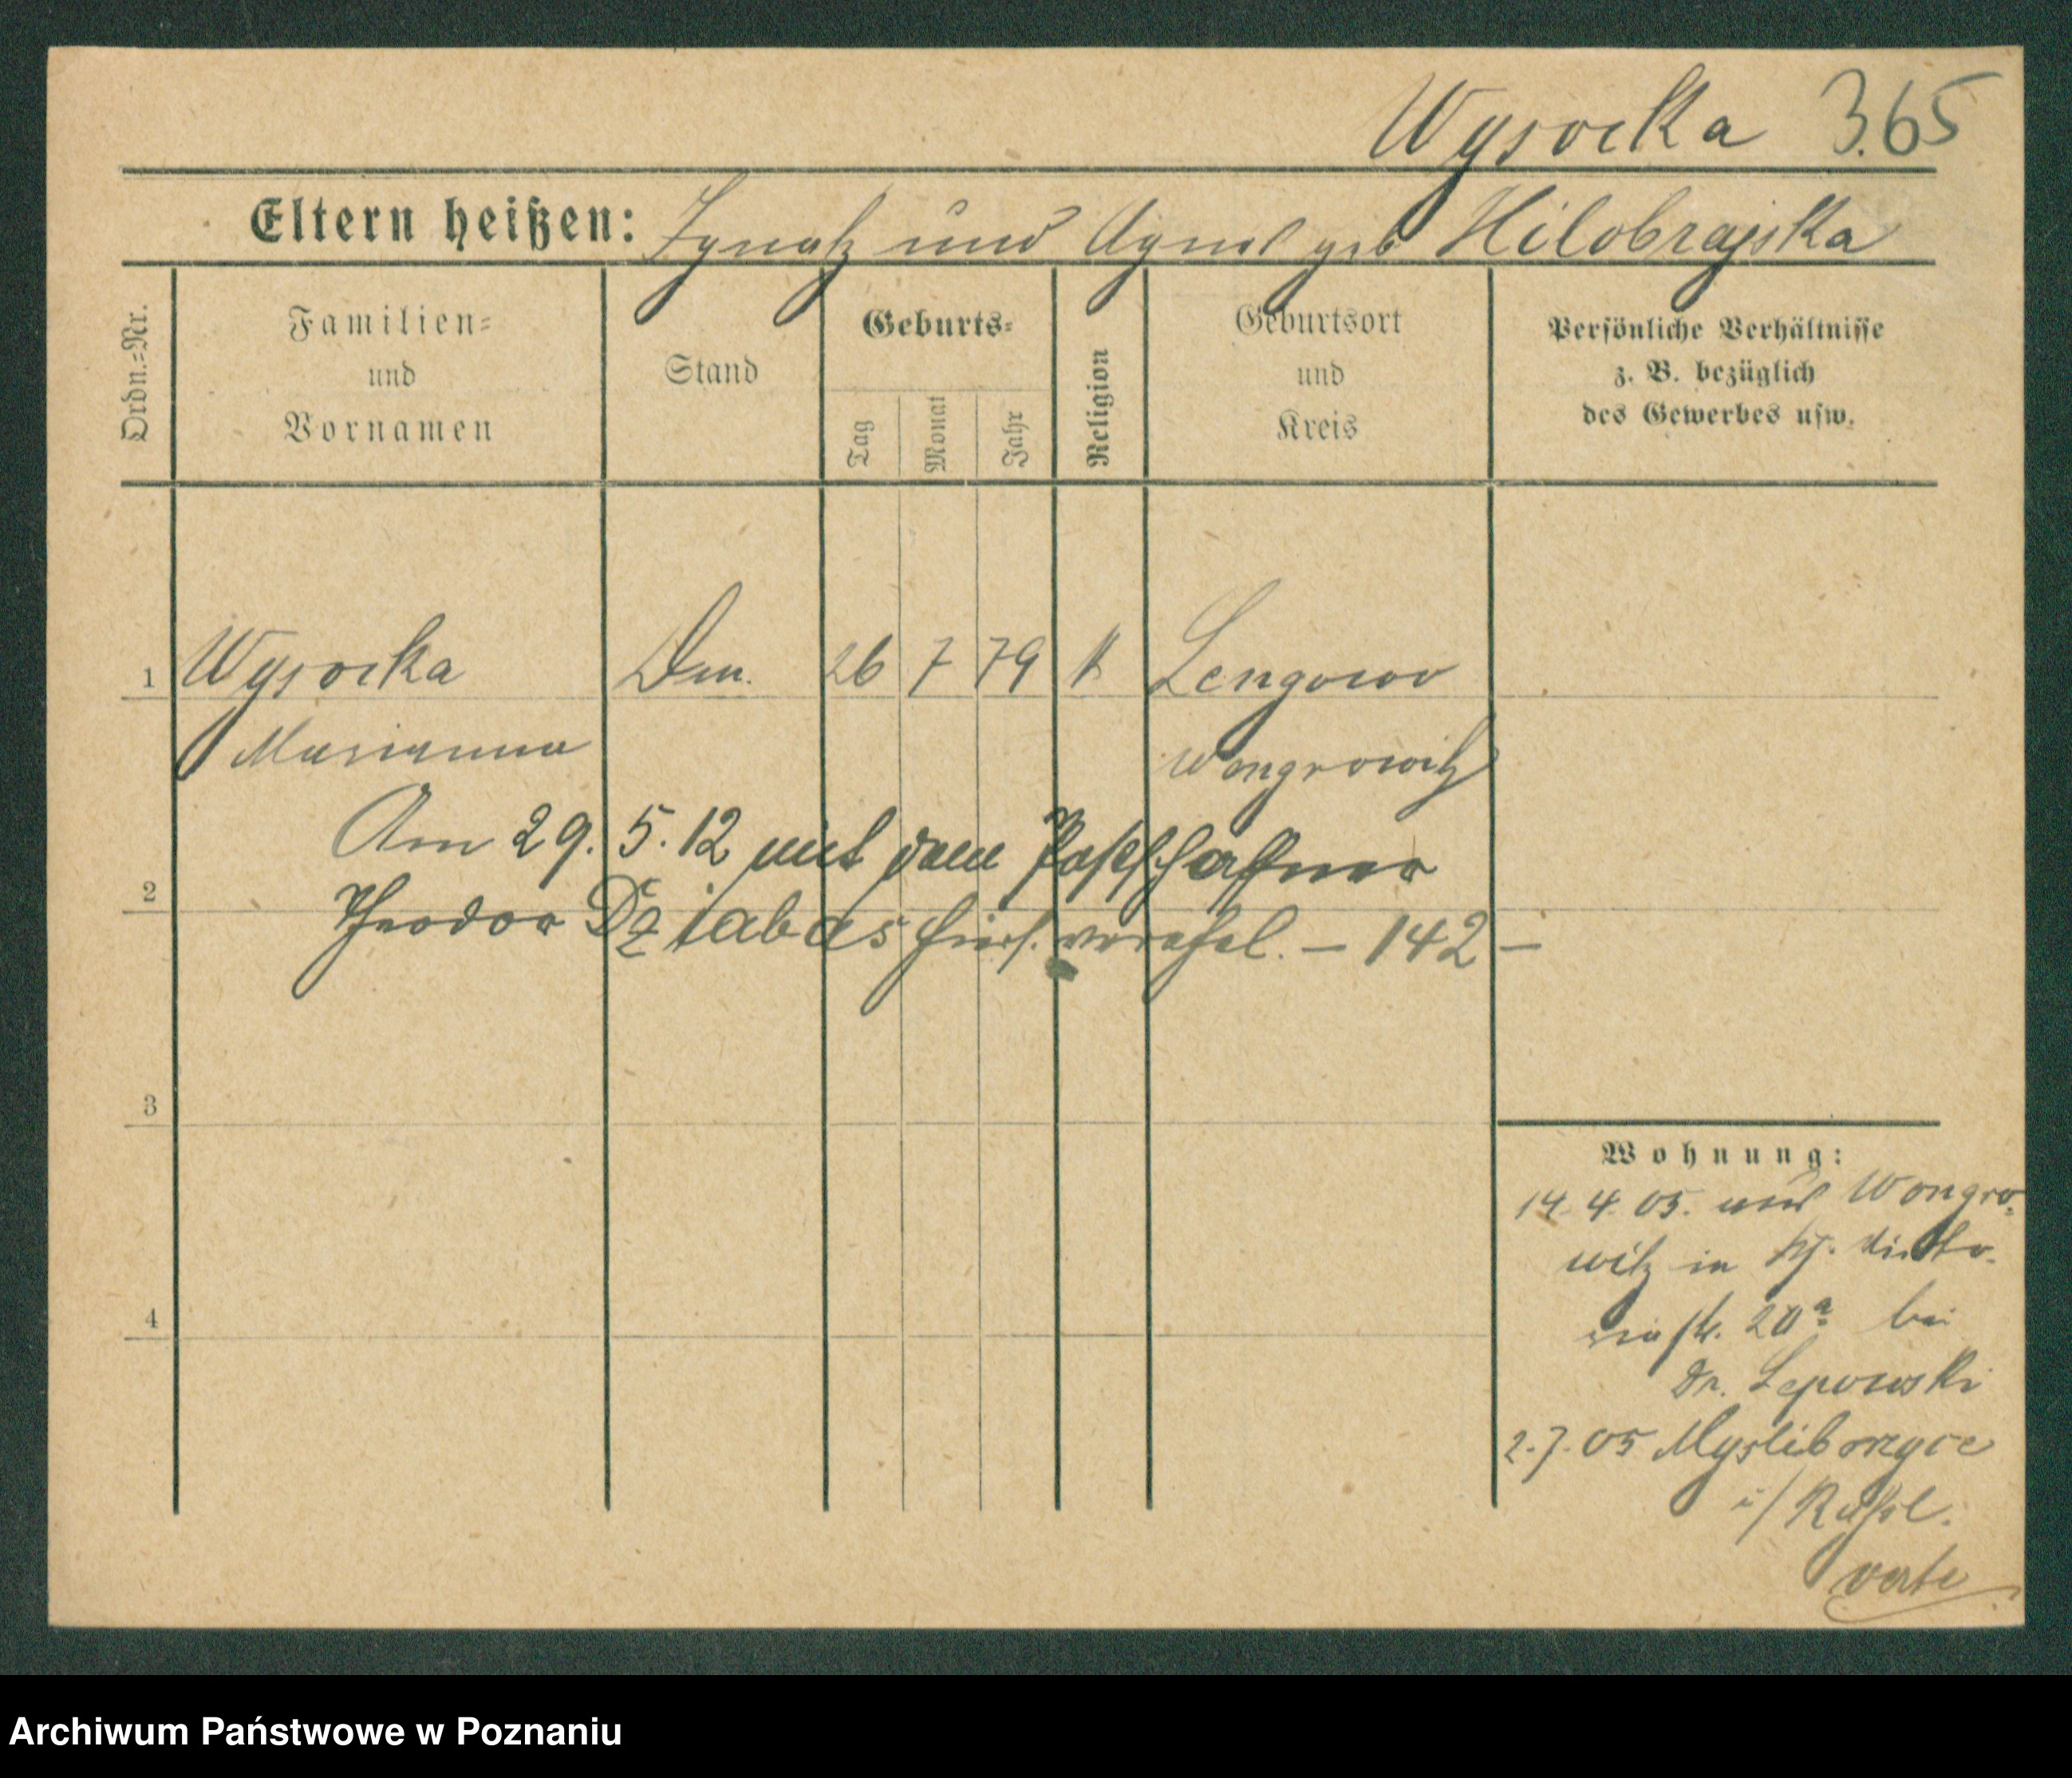 Wysocka 365
Eltern heißen: Ignatz und Agnes geb Hilobrajska
Ordn.=Nr.
Familien=
und
Vornamen
Stand
Geburts=
Tag
Monat
Jahr
Religion
Geburtsort
und
Kreis
Persönliche Verhältnisse
z. B. bezüglich
des Gewerbes usw.
1 Wysocka 26 7 79 K Lengowo
Marianna Wongrowitz
Am 29. 5. 12 mit dem Postschaffner
2
Theodor Dziabas hier verehel. – 142 –
3
4
Wohnung:
14. 4. 05. aus Wongro=
witz in
str. 20a bei
Dr. Lepowski
2. 7. 05 Mysliborzyce
i/ Rußl.
verte
Archiwum Państwowe w Poznaniu